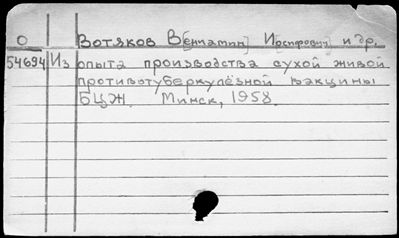 О Вотяков В[ениамин] И[осифович] и др.
54694 Из опыта производства сухой живой
противотуберкулёзной вакцины
БЦЖ. Минск, 1958.